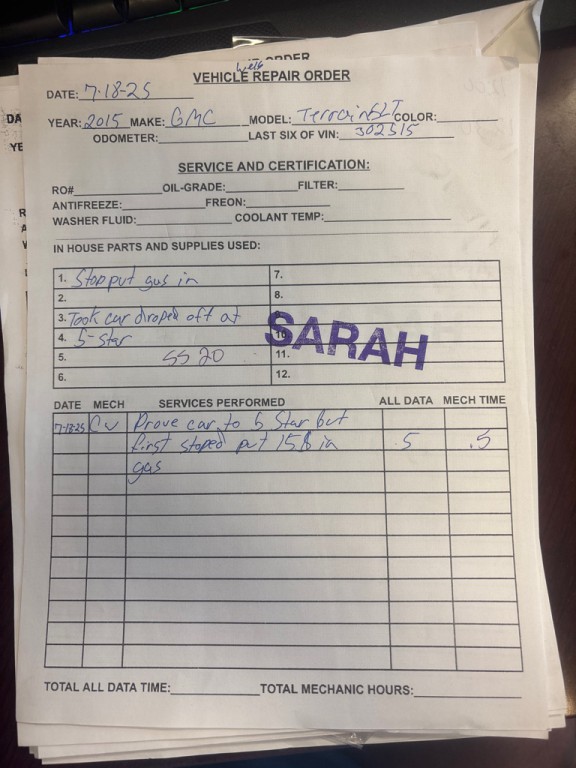 ORDER
VEHICLE REPAIR ORDER
DATE: 7-18-25
YEAR: 2015 MAKE: GMC MODEL: Terrain SLT COLOR:
ODOMETER: LAST SIX OF VIN: 302515
SERVICE AND CERTIFICATION:
RO# OIL-GRADE: FILTER:
ANTIFREEZE: FREON:
WASHER FLUID: COOLANT TEMP:
IN HOUSE PARTS AND SUPPLIES USED:
1. Stop put gas in 7.
2. 8.
3. Took car droped off at
4. 5-Star 10.
SARAH
5. SS 20 11.
6. 12.
DATE MECH SERVICES PERFORMED ALL DATA MECH TIME
7-18-25 CV Drove car to 5 Star but
first stoped put 15.$ in .5 .5
gas
TOTAL ALL DATA TIME: TOTAL MECHANIC HOURS: